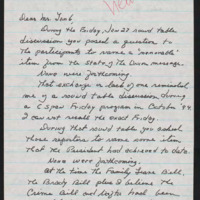 Dear Mr. Lamb,
During the Friday, Jan 27 round table
discussion you posed a question to
the participants to name a "memorable"
item from the state of the Union message.
None were forthcoming.
That exchange on lack of one reminded
me of a round table discussion during
a C span Friday program in October '94.
I can not recall the exact Friday.
During that round table you asked
those reporters to name some item
that the President had achieved to date.
None were forthcoming.
At the time the Family Leave Bill,
the Brady Bill plus
Crime Bill and had been